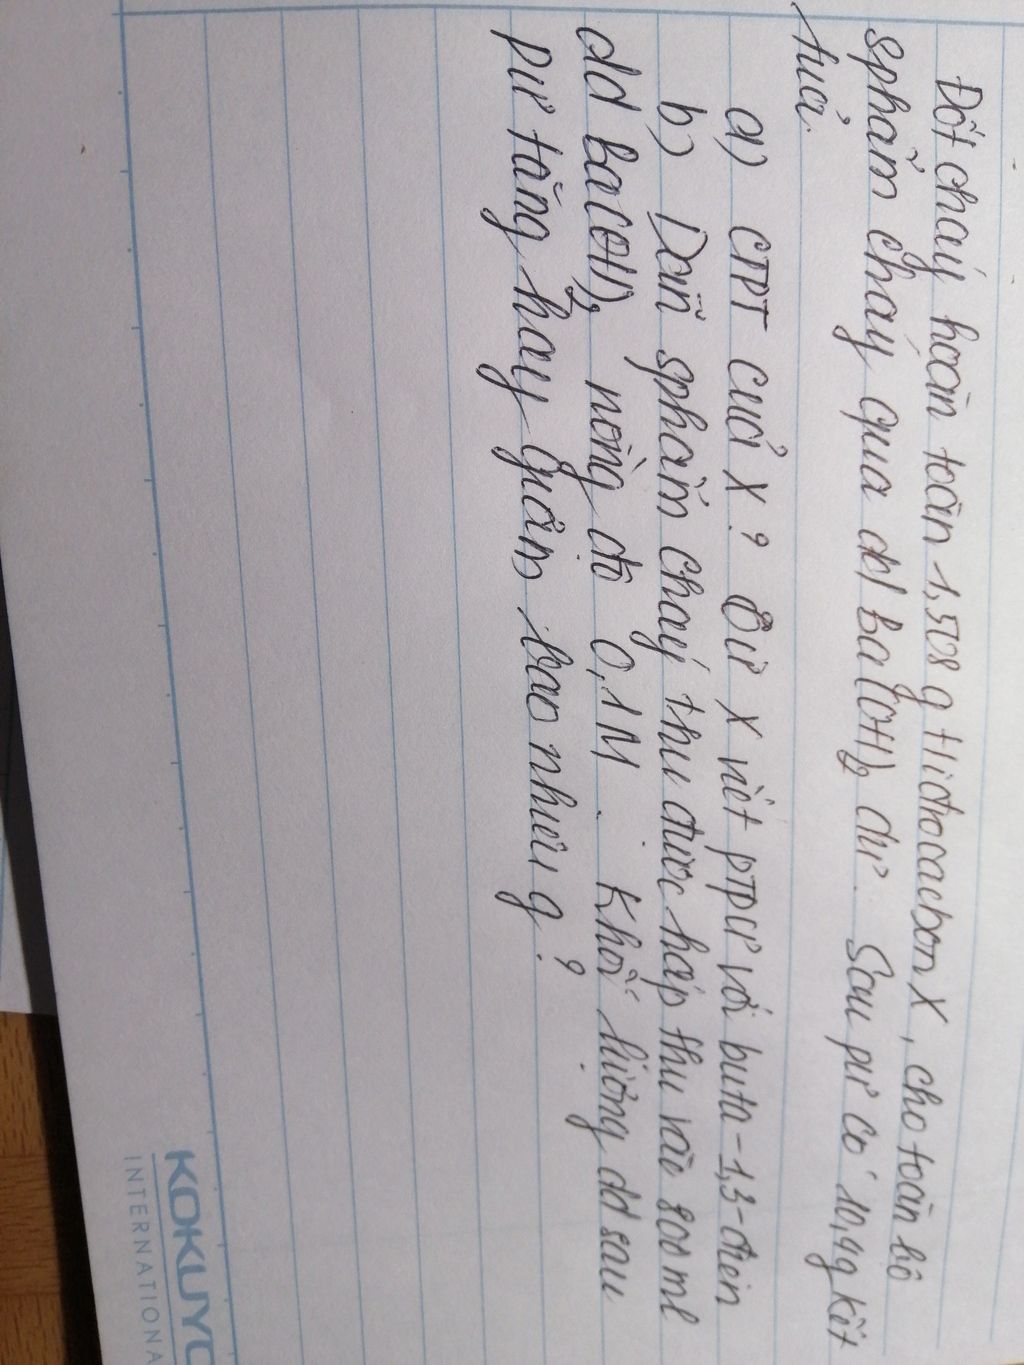 Đốt cháy hoàn toàn 1,508 g Hidrocacbon X, cho toàn bộ
sphẩm cháy qua dd Ba(OH)2 dư. Sau pư có 10,4g kết
tủa.
a) CTPT của X? Từ X viết ptpư với buta-1,3-đien
b) Dẫn sphẩm cháy thu được hấp thu vào 800 ml
dd ba(OH)2 nồng độ 0,1M. Khối lượng dd sau
pư tăng hay giảm bao nhiêu g?
KOKUYO
INTERNATIONA